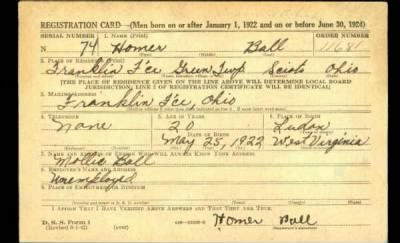 REGISTRATION CARD—(Men born on or after January 1, 1922 and on or before June 30, 1924)
SERIAL NUMBER 1. NAME (Print) ORDER NUMBER
N 74 Homer Ball 11681
2. PLACE OF RESIDENCE (Print)
Franklin F'ce Green Twp. Scioto Ohio
[THE PLACE OF RESIDENCE GIVEN ON THE LINE ABOVE WILL DETERMINE LOCAL BOARD
JURISDICTION; LINE 2 OF REGISTRATION CERTIFICATE WILL BE IDENTICAL]
3. MAILING ADDRESS
Franklin F'ce, Ohio
4. TELEPHONE 5. AGE IN YEARS 6. PLACE OF BIRTH
None 20
DATE OF BIRTH
May 25, 1922 West Virginia
7. NAME AND ADDRESS OF PERSON WHO WILL ALWAYS KNOW YOUR ADDRESS
Mollie Ball
8. EMPLOYER'S NAME AND ADDRESS
Unemployed
9. PLACE OF EMPLOYMENT OR BUSINESS
I AFFIRM THAT I HAVE VERIFIED ABOVE ANSWERS AND THAT THEY ARE TRUE.
D. S. S. Form 1
Homer Ball